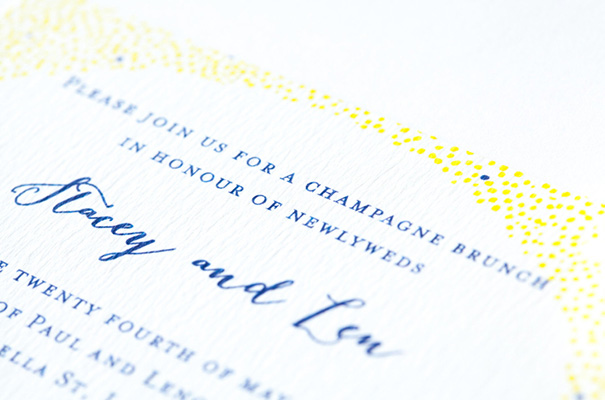 Please join us for a champagne brunch
in honour of newlyweds
Stacey and Len
twenty fourth of may
of Paul and
St.